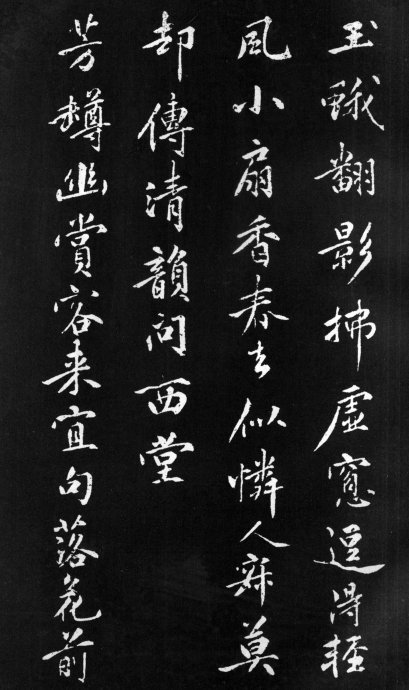 玉蛾翻影拂虛窻逗得輕
風小扇香春去似憐人寂莫
却傳清韻向西堂
芳罇幽賞客来宜句落花前